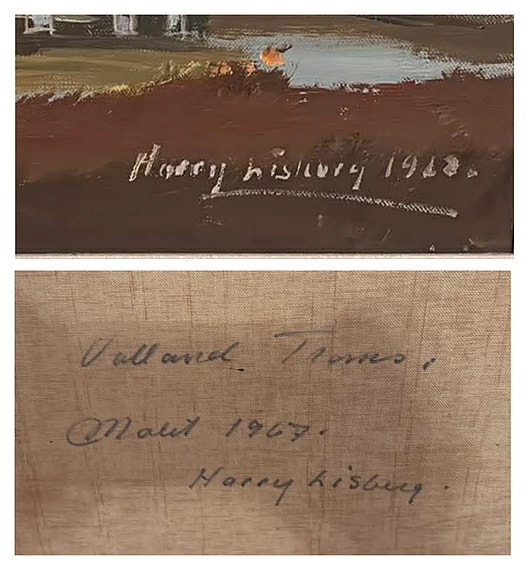 Harry Lisburg 1968.
Valland Troms.
Malet 1967.
Harry Lisburg.